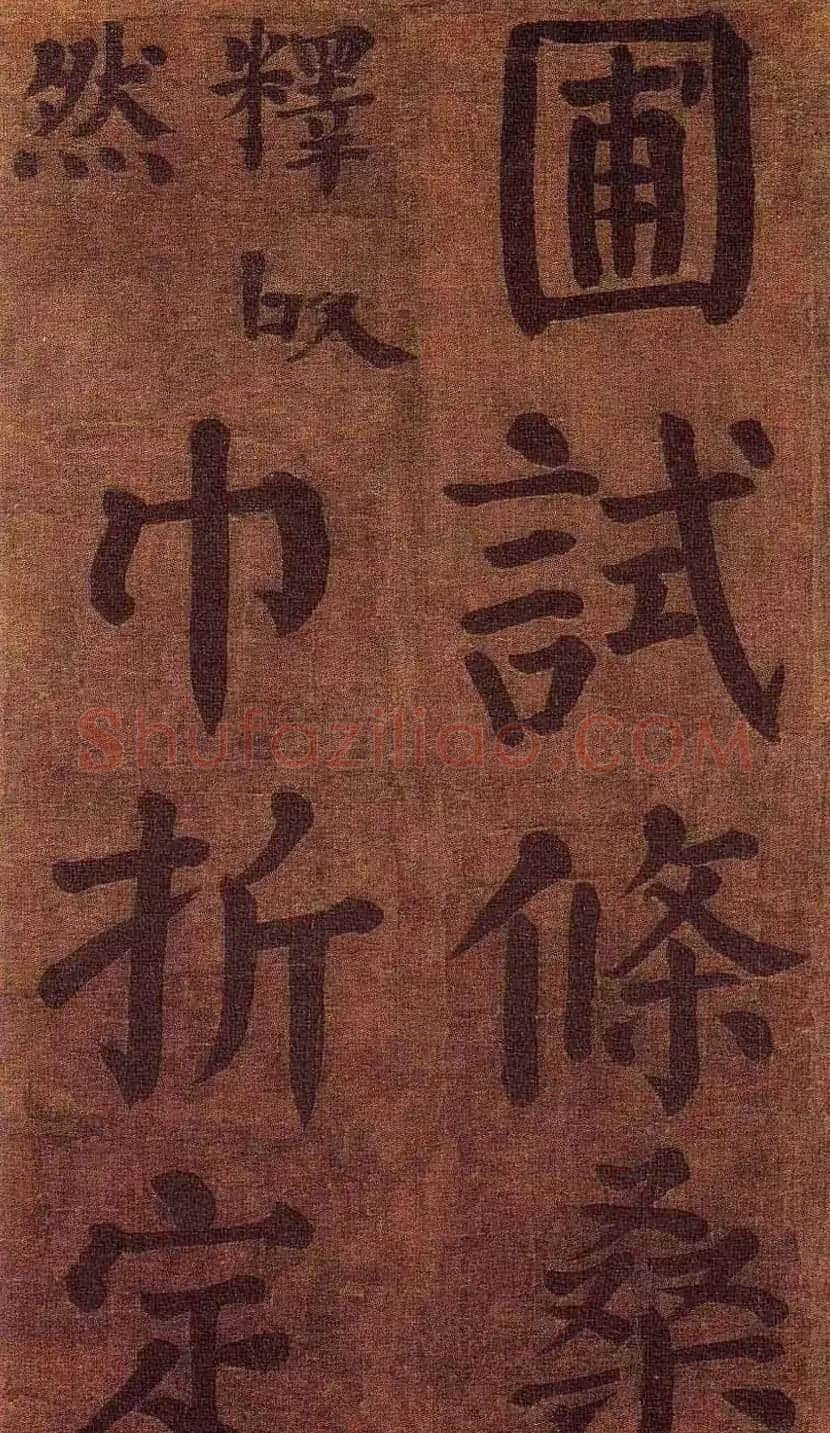 圃試條桑
釋皎
然
巾折定
Shufaziliao.COM